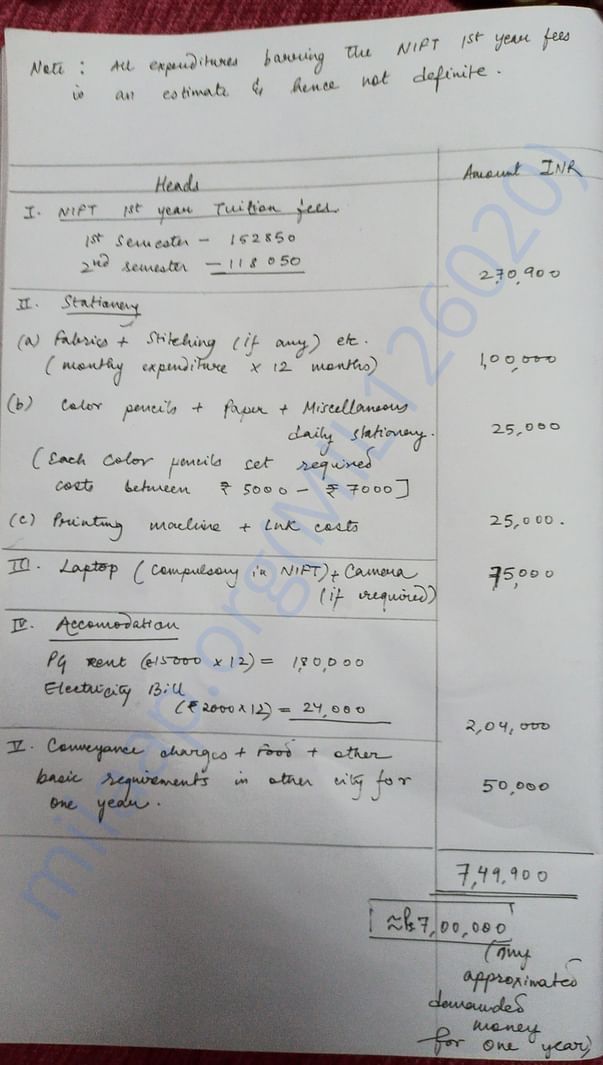 Note : All expenditures barring the NIFT 1st year fees
is an estimate & hence not definite.
Heads
Amount INR
I. NIFT 1st year Tuition fees
1st Semester - 152850
2nd semester - 118050
270,900
II. Stationery
(a) Fabrics + Stitching (if any) etc.
(monthly expenditure x 12 months)
1,00,000
(b) Color pencils + Paper + Miscellaneous
daily stationery.
25,000
(Each Color pencils set required
costs between ₹ 5000 - ₹ 7000]
(c) Printing machine + Ink costs
25,000.
III. Laptop (Compulsory in NIFT) + Camera
(if required)
75,000
IV. Accomodation
PG rent (₹15000 x 12) = 1,80,000
Electricity Bill
(₹ 2000 x 12) = 24,000
2,04,000
V. Conveyance charges + Food + other
basic requirements in other city for
one year.
50,000
7,49,900
≈ Rs 7,00,000
(my
approximated
demanded
money
for one year)
milaap.org(MIL126020)